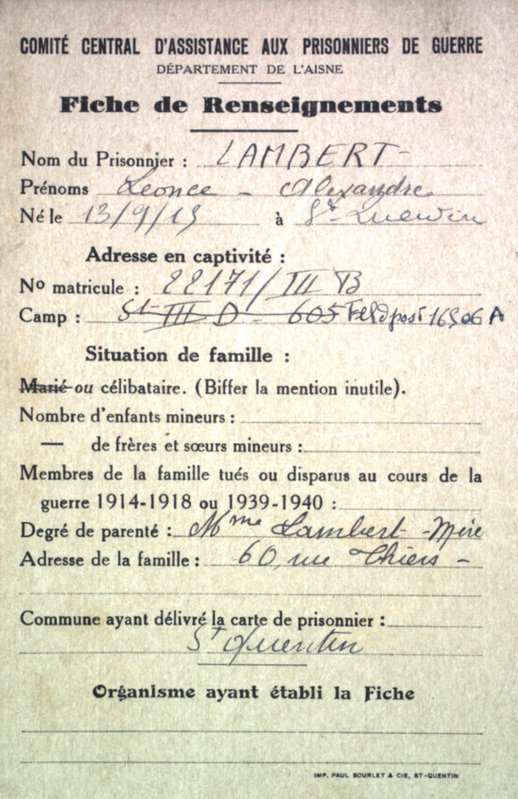 COMITÉ CENTRAL D'ASSISTANCE AUX PRISONNIERS DE GUERRE
DÉPARTEMENT DE L'AISNE
Fiche de Renseignements
Nom du Prisonnier : LAMBERT
Prénoms Léonce - Alexandre
Né le 13/9/15 à St Quentin
Adresse en captivité :
No matricule : 22171/III B
Camp : St III D - 605 Feldpost 16506 A
Situation de famille :
Marié ou célibataire. (Biffer la mention inutile).
Nombre d'enfants mineurs :
— de frères et sœurs mineurs :
Membres de la famille tués ou disparus au cours de la
guerre 1914-1918 ou 1939-1940 :
Degré de parenté : Mme Lambert - Mère
Adresse de la famille : 60, rue Thiers -
Commune ayant délivré la carte de prisonnier :
St Quentin
Organisme ayant établi la Fiche
IMP. PAUL BOURLET & CIE, ST-QUENTIN